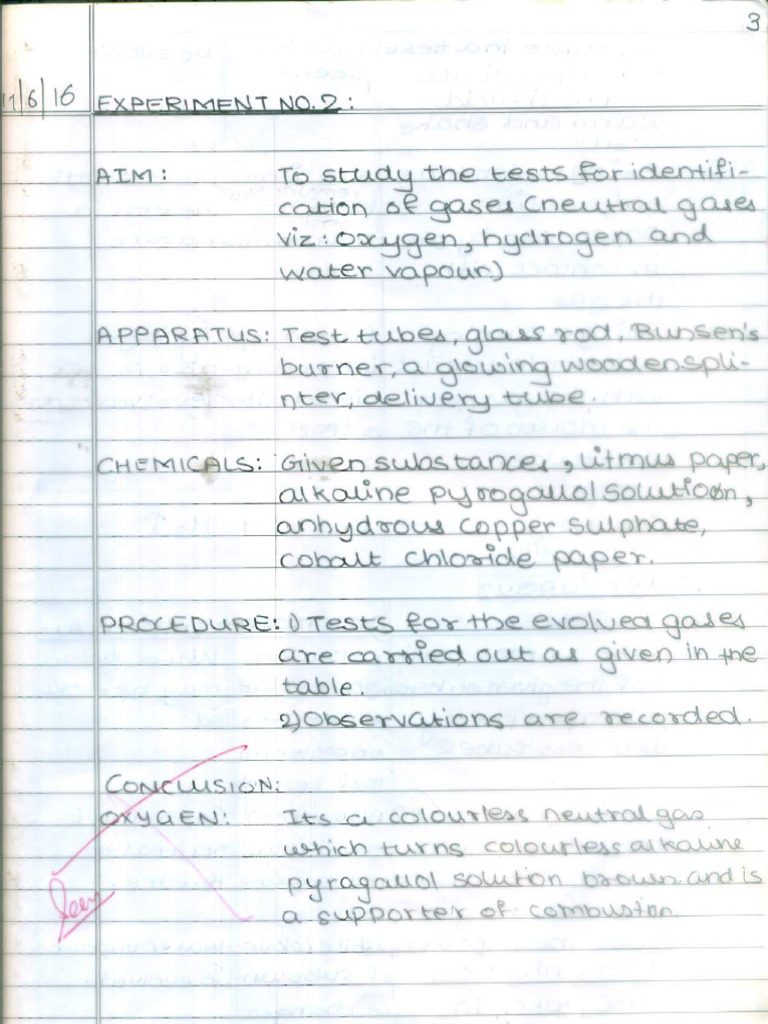 3
11/6/16 EXPERIMENT NO. 2:
AIM: To study the tests for identifi-
cation of gases (neutral gases
viz: oxygen, hydrogen and
water vapour)
APPARATUS: Test tubes, glass rod, Bunsen's
burner, a glowing wooden spli-
nter, delivery tube.
CHEMICALS: Given substances, litmus paper,
alkaline pyrogallol solution,
anhydrous copper sulphate,
cobalt chloride paper.
PROCEDURE: 1) Tests for the evolved gases
are carried out as given in the
table.
2) Observations are recorded.
CONCLUSION:
OXYGEN: Its a colourless neutral gas
which turns colourless alkaline
pyragallol solution brown and is
a supporter of combustion.
Seen